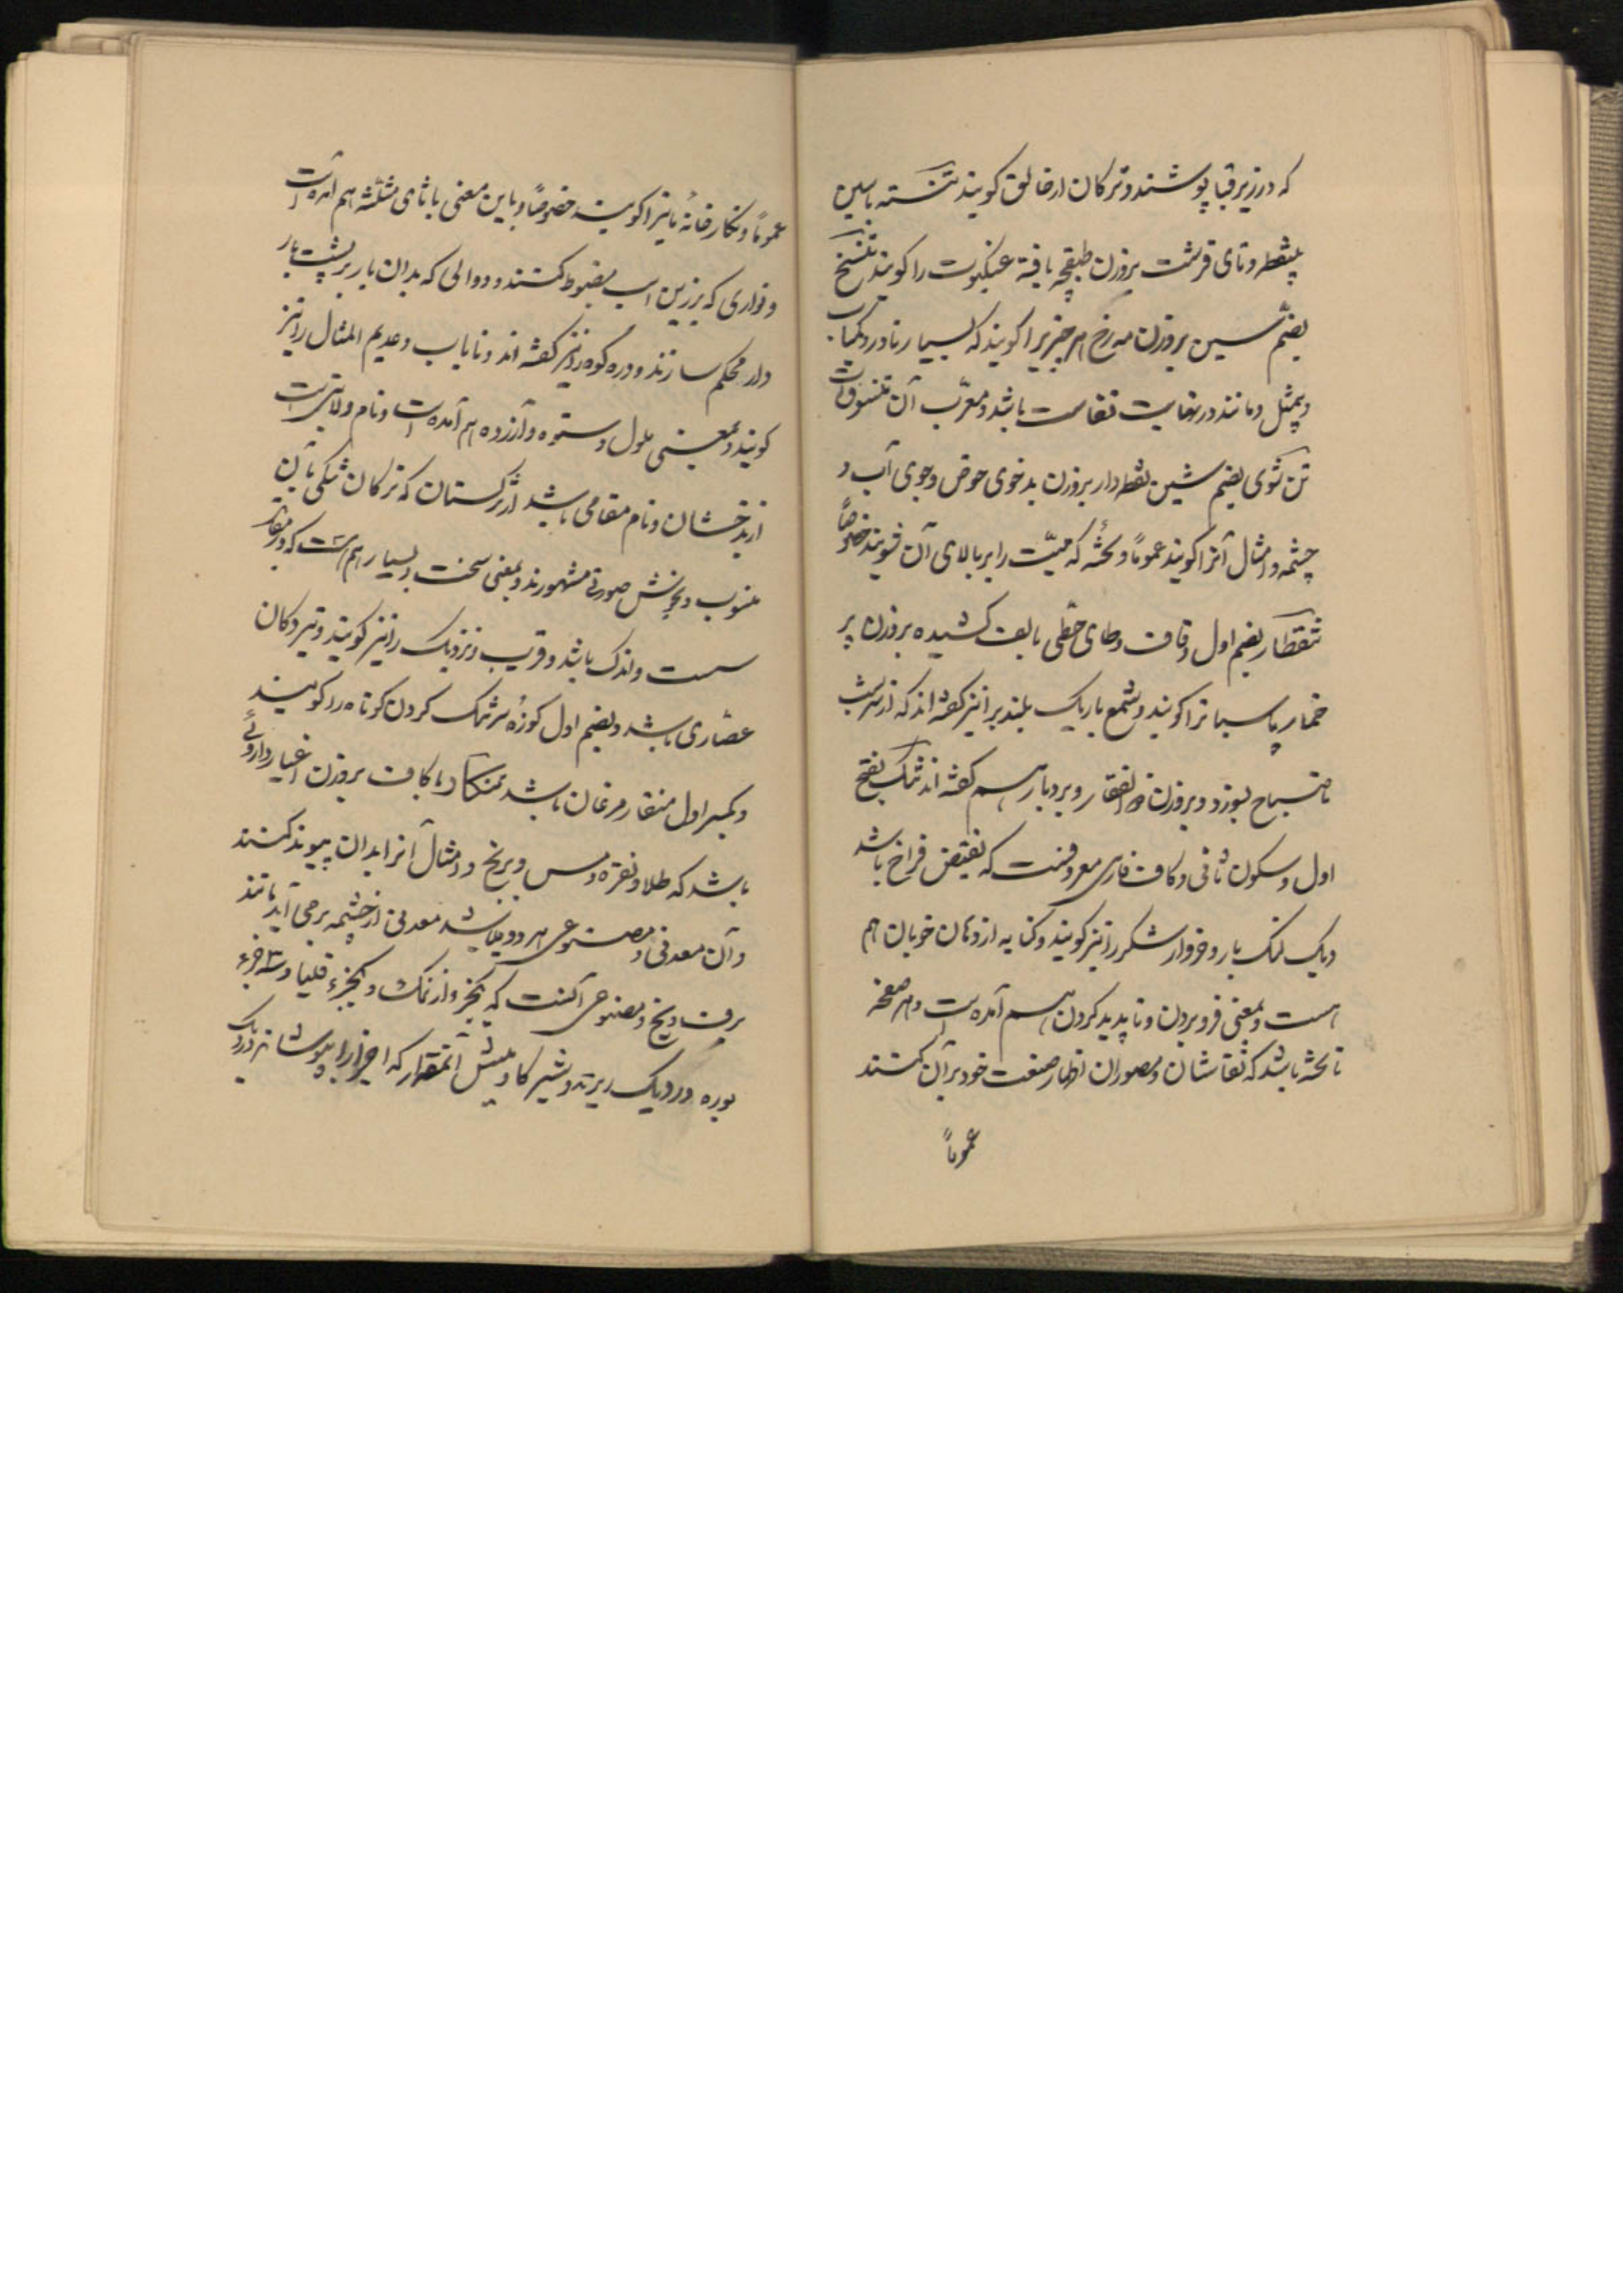 که در زیر قبا پوشند و ترکان ارخالق کویند تنسته باسین
بینقطه و تای قرشت بروزن طبقچه بافتهٔ عنکبوت را کویند تنسخ
بضم سین بروزن مه رخ هر چیزیرا کویند که بسیار نادر و کمیاب
و بیمثل و مانند در نهایت نفاست باشد و معرّب آن تنسوق است
تن شوی بضم شین نقطه دار بروزن بدخوی حوض و جوی آب و
چشمه و امثال آنرا کویند عموماً و تخته که میّت را بر بالای آن شویند خصوصاً
تنقطار بضم اول و قاف و طای حطی بالف کشیده بروزن پر
خمار پاسبانرا کویند و شمع باریک بلند برا نیز کفته اند که از سرشب
تا صباح بسوزد و بروزن ذو الفقار و بردبار هم کفته اند تنک بفتح
اول و سکون ثانی و کاف فارسی معروفست که نقیض فراخ باشد
و یک لنک بار و خروار شکر را نیز کویند و کنایه از دهان خوبان هم
هست و بمعنی فرو بردن و ناپدید کردن هم آمده است و هر صفحه
تا تخته باشد که نقاشان و مصوران اظهار صنعت خود بر آن کنند
عموماً
عموماً و نکارخانهٔ مانیرا کویند خصوصاً و باین معنی با ثای مثلثه هم آمده است
و نواری که بر زین اسب مضبوط کنند و دوالی که بدان بار بر پشت بار
دار محکم سازند و دره کوه را نیز کفته اند و نایاب و عدیم المثال را نیز
کویند و بمعنی ملول و ستوه و آزرده هم آمده است و نام ولایتی است
از بدخشان و نام مقامی باشد از ترکستان که ترکان تنکی بآن
منسوب و بخوش صورتی مشهورند و بمعنی سخت و بسیار هم هست که در مقابل
سست و اندک باشد و قریب و نزدیک را نیز کویند و تیر دکان
عصّاری باشد و بضم اول کوزهٔ سر تنک کردن کوتاه را کویند
و بکسر اول منقار مرغان باشد تنکار با کاف بروزن اغیار داروئی
باشد که طلا و نقره و مس و برنج و امثال آنرا بدان پیوند کنند
و آن معدنی و مصنوعی هر دو میباشد معدنی از چشمه بر می آید مانند
برف و یخ و مصنوعی آنست که یکجزو از نمک و یکجزء قلیا و سه جزء
بوره در دیک ریزند و شیر کاومیش آنمقدار که اجزا را بپوشاند در دیک